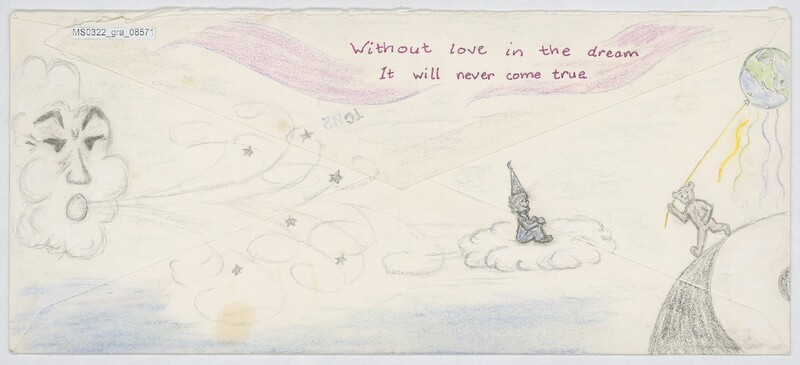 MS0322_gra_08571
Without love in the dream
It will never come true